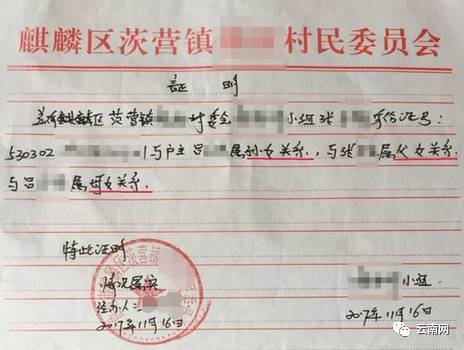 麒麟区茨营镇 村民委员会
证 明
兹有麒麟区茨营镇 村委会 小组张 身份证号：
530302 1与户主吕 属孙女关系，与张 属父女关系，
与吕 属母女关系。
特此证明
情况属实
经办人：
2017年11月16日
小组
2017年11月16日
麒麟区茨营镇
云南网